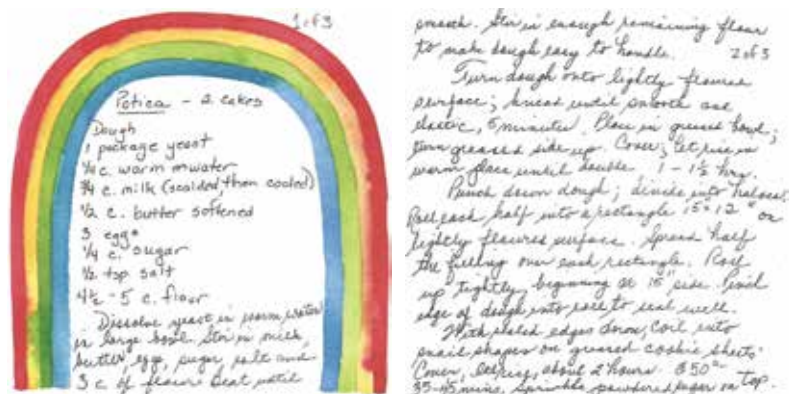 1 of 3
Potica - 2 cakes
Dough
1 package yeast
1/4 c. warm water
3/4 c. milk (scalded, then cooled)
1/2 c. butter softened
3 eggs
1/4 c. sugar
1/2 tsp salt
4 1/2 - 5 c. flour
Dissolve yeast in warm water
in large bowl. Stir in milk,
butter, eggs, sugar, salt and
3 c of flour. Beat until
smooth. Stir in enough remaining flour
to make dough easy to handle.
2 of 3
Turn dough onto lightly floured
surface; knead until smooth and
elastic, 5 minutes. Place in greased bowl;
turn greased side up. Cover; let rise in
warm place until double. 1 - 1 1/2 hrs.
Punch down dough; divide into halves.
Roll each half into a rectangle 15" x 12" on
lightly floured surface. Spread half
the filling over each rectangle. Roll
up tightly, beginning at 15" side. Pinch
edge of dough into roll to seal well.
With sealed edges down, coil into
snail shapes on greased cookie sheets.
Cover, let rise, about 2 hours. 350°
35-45 mins, sprinkle powdered sugar on top.